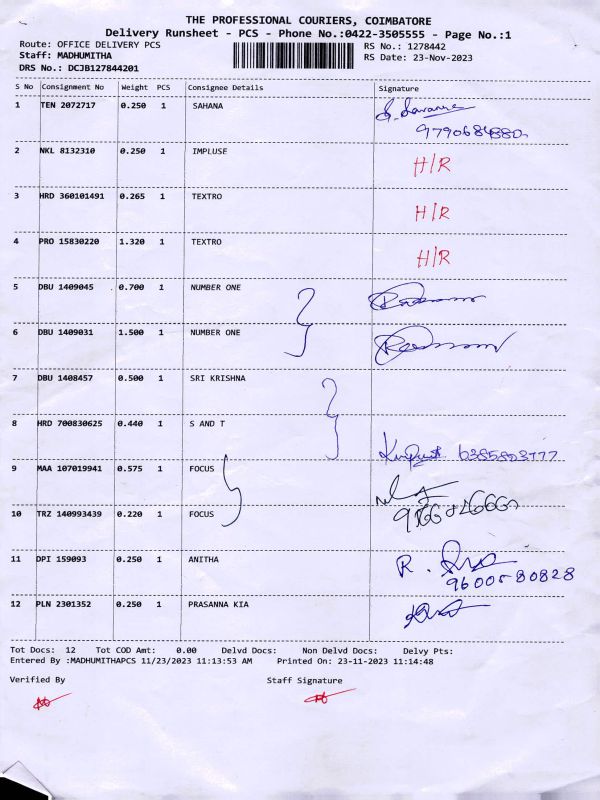 THE PROFESSIONAL COURIERS, COIMBATORE
Delivery Runsheet - PCS - Phone No.:0422-3505555 - Page No.:1
Route: OFFICE DELIVERY PCS RS No.: 1278442
Staff: MADHUMITHA RS Date: 23-Nov-2023
DRS No.: DCJB127844201
S No Consignment No Weight PCS Consignee Details Signature
1 TEN 2072717 0.250 1 SAHANA
2 NKL 8132310 0.250 1 IMPLUSE H/R
3 HRD 360101491 0.265 1 TEXTRO H/R
4 PRO 15830220 1.320 1 TEXTRO H/R
5 DBU 1409045 0.700 1 NUMBER ONE
6 DBU 1409031 1.500 1 NUMBER ONE
7 DBU 1408457 0.500 1 SRI KRISHNA
8 HRD 700830625 0.440 1 S AND T
9 MAA 107019941 0.575 1 FOCUS
10 TRZ 140993439 0.220 1 FOCUS
11 DPI 159093 0.250 1 ANITHA R.
9600580828
12 PLN 2301352 0.250 1 PRASANNA KIA
Tot Docs: 12 Tot COD Amt: 0.00 Delvd Docs: Non Delvd Docs: Delvy Pts:
Entered By :MADHUMITHAPCS 11/23/2023 11:13:53 AM Printed On: 23-11-2023 11:14:48
Verified By Staff Signature